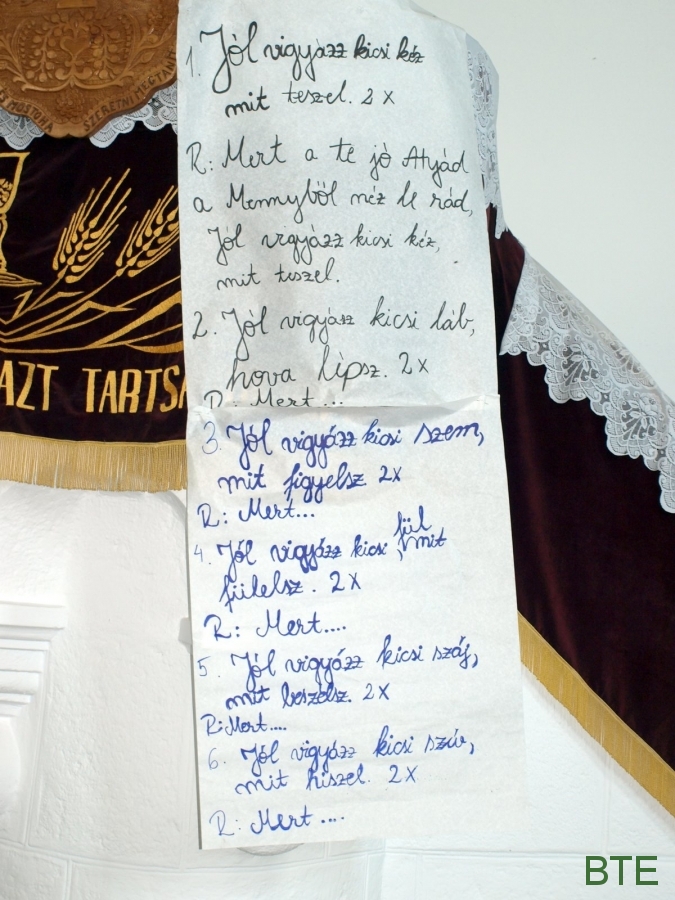 S MOSTOHA
SZERETNI MEGTANÍT
AZT TARTSA
1. Jól vigyázz kicsi kéz
mit teszel. 2x
R: Mert a te jó Atyád
a Mennyből néz le rád,
Jól vigyázz kicsi kéz,
mit teszel.
2. Jól vigyász kicsi láb,
hova lépsz. 2x
R: Mert...
3. Jól vigyázz kicsi szem,
mit figyelsz 2x
R: Mert...
4. Jól vigyázz kicsi fül, mit
fülelsz. 2x
R: Mert....
5. Jól vigyázz kicsi száj,
mit beszélsz. 2x
R: Mert....
6. Jól vigyázz kicsi szív,
mit hiszel. 2x
R: Mert....
BTE